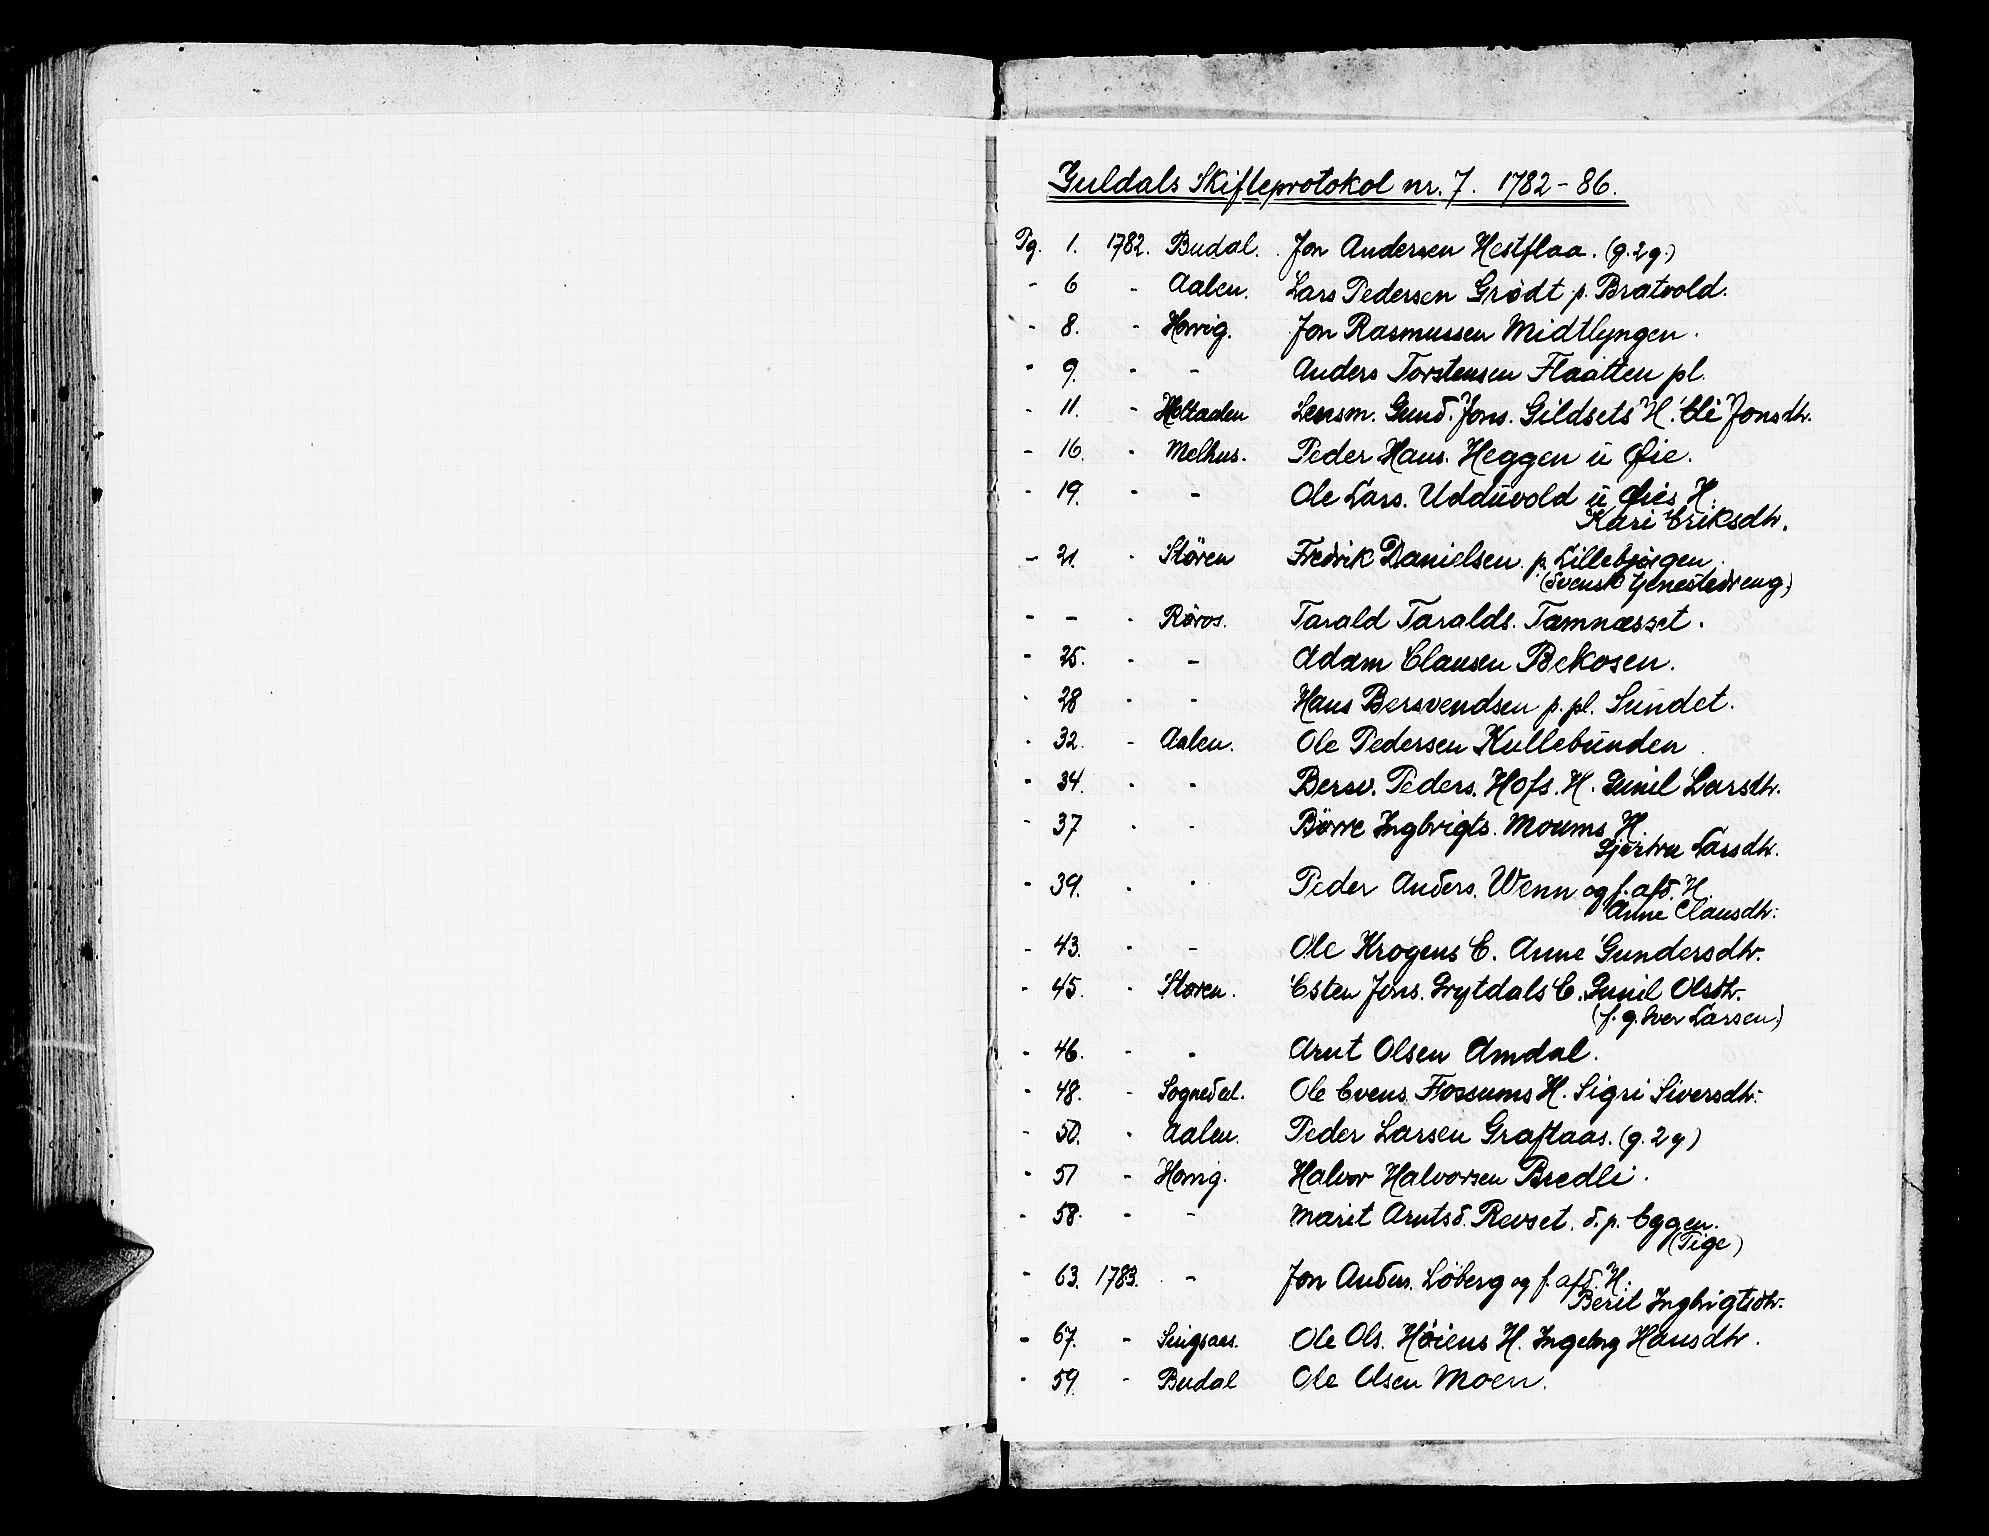 Guldals Skifteprotokol nr. 7. 1782-86.
Pg. 1. 1782. Budal. Jon Andersen Hestflaa. (g. 2 g.)
- 6 - Aalen. Lars Pedersen Grødt p. Bratvold.
- 8. - Horrig. Jon Rasmussen Midtlyngen.
- 9. - - Anders Torstensen Flaatten pl.
- 11. - Holtaalen Lensm. Gund. Jons. Gildsets H. Eli Jonsdtr.
- 16. - Melhus. Peder Hans. Heggen u Øie.
- 19. - - Ole Lars. Udduvold u Øies H.
Kari Eriksdtr.
- 21. - Stören Fredrik Danielsen p. Lillebjørgen.
(Svensk tjenestedreng)
- - - Røros. Tarald Taralds. Tamnæsset.
- 25. - - Adam Clausen Bekosen.
- 28 - - Hans Bersvendsen p. pl. Sundet.
- 32. - Aalen. Ole Pedersen Kullebunden.
- 34. - - Bersv. Peders. Hofs. H. Gunil Larsdtr.
- 37 - - Börre Ingbrigts. Moums H.
Gjertru Larsdtr.
- 39. - - Peder Anders. Wenn og f. afd. H.
Anne Clausdtr.
- 43. - - Ole Krogens E. Anne Gundersdtr.
- 45. - Støren. Esten Jons. Grytdals E. Gunil Olsdtr.
(f. g. Iver Larsen.)
- 46. - - Arnt Olsen Amdal.
- 48. - Sognedal. Ole Evens. Flossums H. Sigri Siversdtr.
- 50. - Aalen. Peder Larsen Graftaas. (g. 2 g)
- 51 - Horrig. Halvor Halvorsen Bredli.
- 58. - - Marit Arntsd. Revset. d. p. Eggen.
(Pige)
- 63. 1783. - Jon Anders. Løberg og f. afd. H.
Berit Ingbrigtsdtr.
- 67. - Singsaas. Ole Ols. Høiens H. Ingeborg Hansdtr.
- 59. - Budal Ole Olsen Moen.